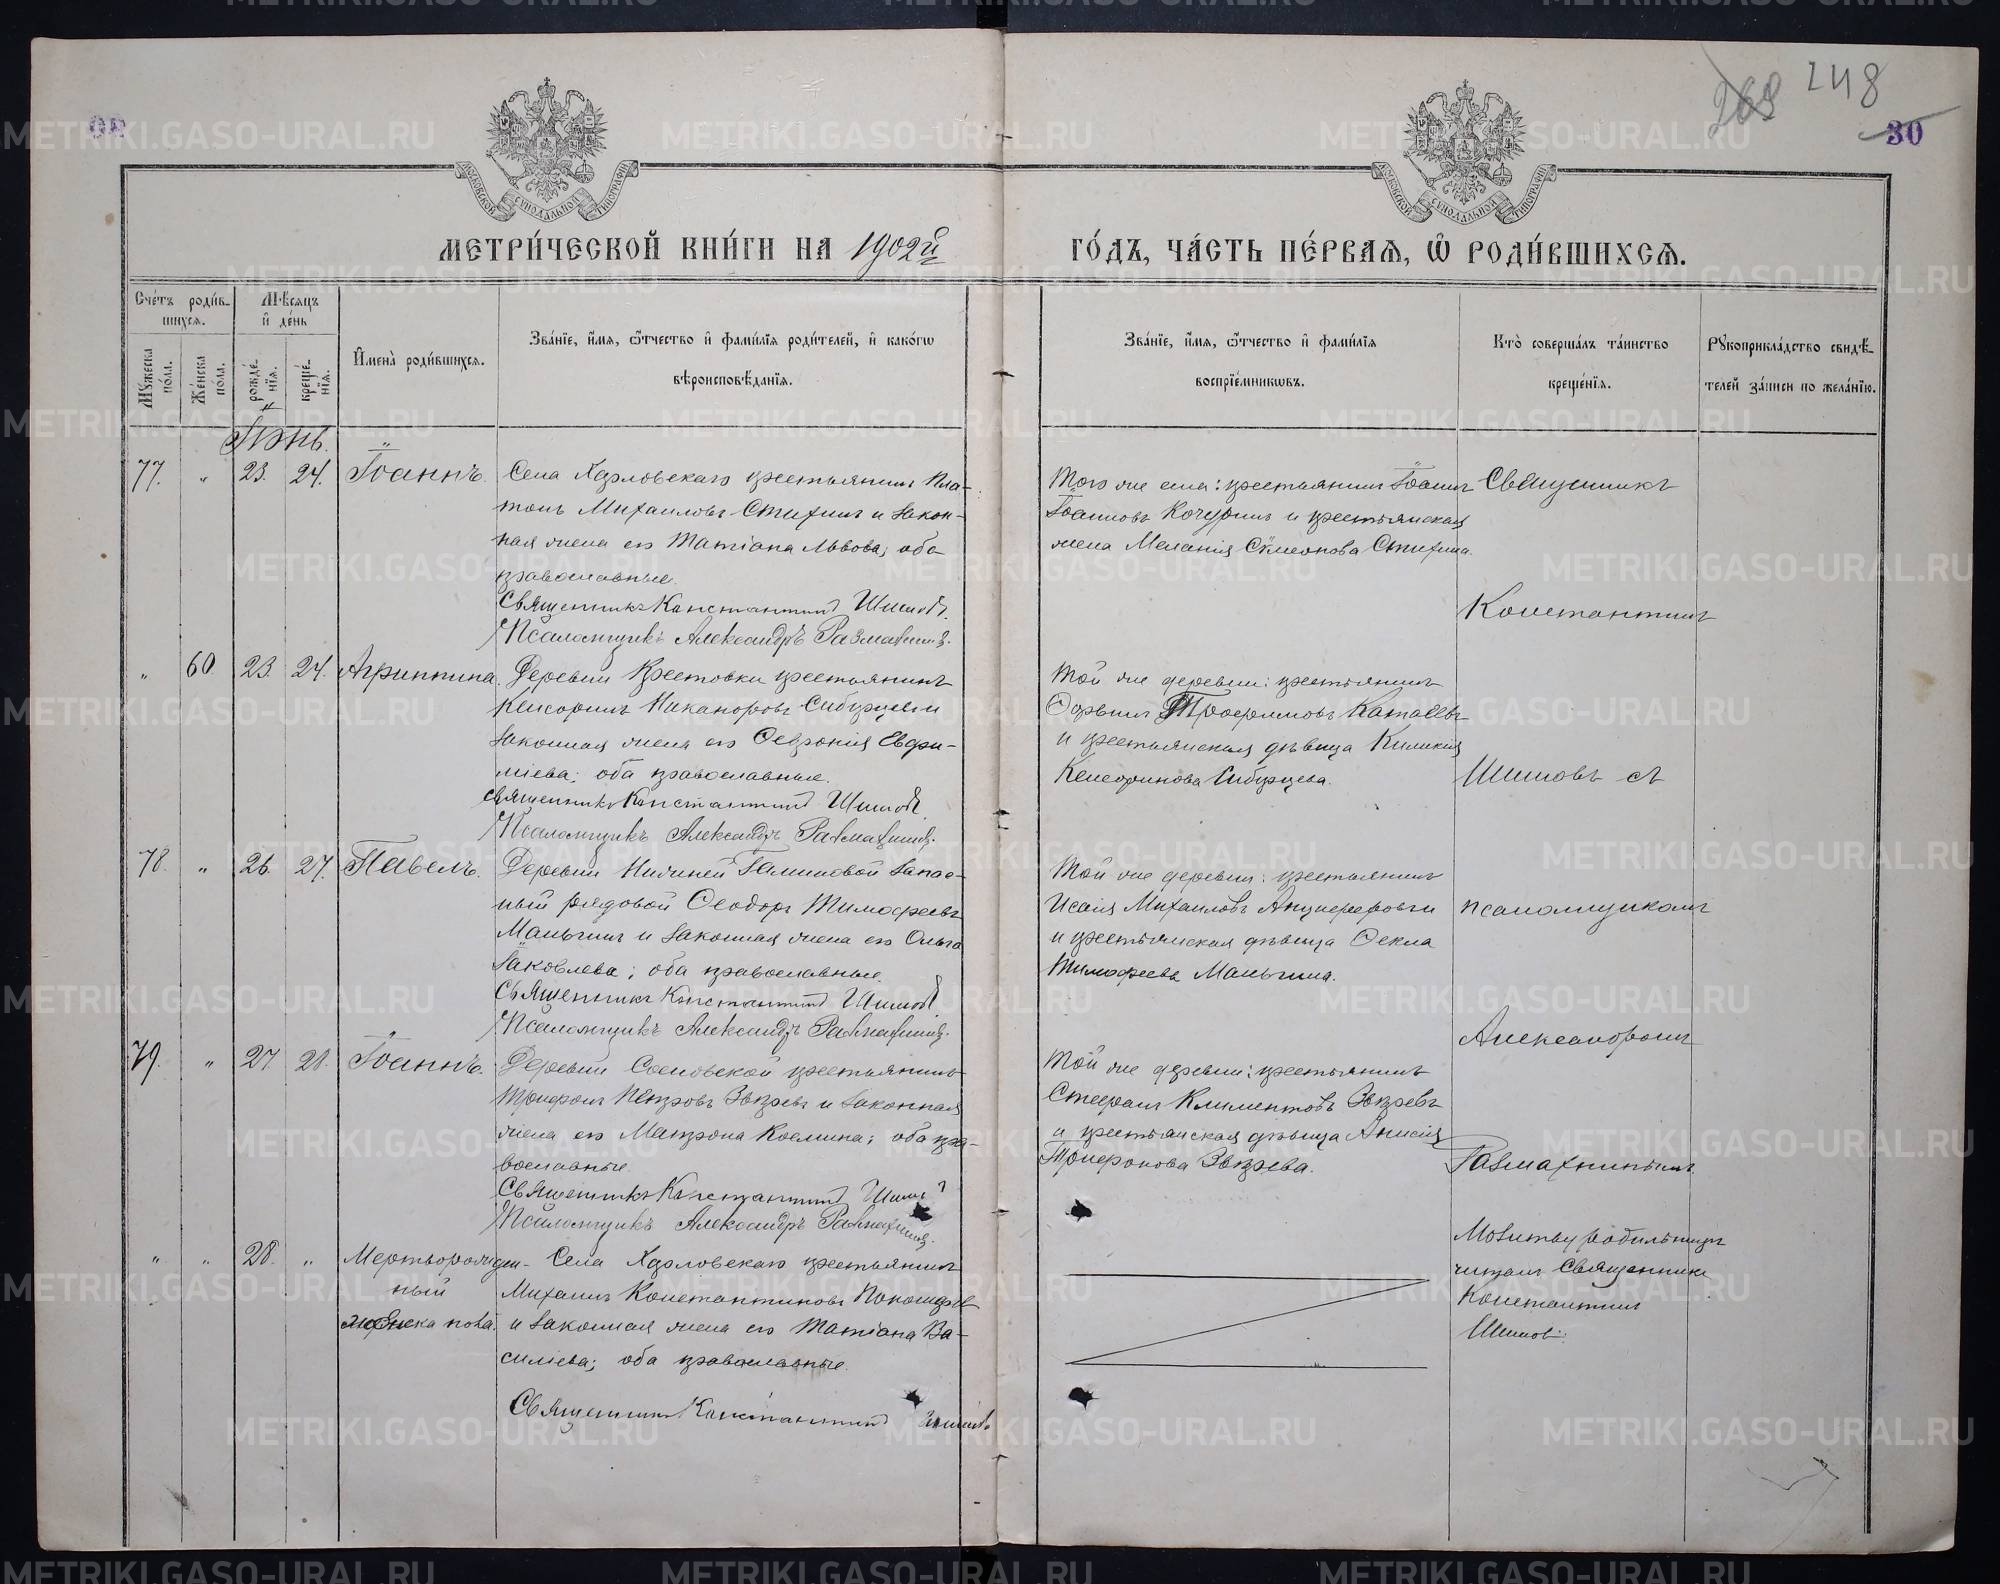 268 248
30
МОСКОВСКОЙ СѴНОДАЛЬНОЙ ТИПОГРАФІИ
МОСКОВСКОЙ СѴНОДАЛЬНОЙ ТИПОГРАФІИ
МЕТРИ́ЧЕСКОЙ КНИ́ГИ НА 1902й
ГО́ДЪ, ЧА́СТЬ ПЕ́РВАѦ, Ѡ҆ РОДИ́ВШИХСѦ.
Сче́тъ роди́в-
шихсѧ.
Мѣ́сѧцъ
и҆ де́нь
Мꙋ́жеска
по́ла.
Же́нска
по́ла.
рожде́-
нїѧ.
креще́-
нїѧ.
И҆мена̀ роди́вшихсѧ.
Зва́нїе, и҆́мѧ, ѻ҆́тчество и҆ фами́лїѧ роди́телей, и҆ како́гѡ
вѣроисповѣ́данїѧ.
Зва́нїе, и҆́мѧ, ѻ҆́тчество и҆ фами́лїѧ
воспрїе́мникѡвъ.
Кто̀ соверша́лъ та́инство
креще́нїѧ.
Рꙋкоприкла́дство свидѣ́-
телей за́писи по жела́нїю.
Іюнь.
77. " 23. 24. Іоаннъ.
Села Харловскаго крестьянинъ Пла-
тонъ Михаиловъ Стихинъ и закон-
ная жена его Татіана Львова; оба
православные.
Священникъ Константинъ Шишовъ.
Псаломщикъ Александръ Размахнинъ.
Того же села: крестьянинъ Іоаннъ
Іоанновъ Кочуринъ и крестьянская
жена Меланія Сѵмеонова Стихина.
" 60. 23. 24. Агриппина.
Деревни Крестовки крестьянинъ
Кенсоринъ Никаноровъ Сибирцевъ и
законная жена его Февронія Евфи-
міева; оба православные.
Священникъ Константинъ Шишовъ.
Псаломщикъ Александръ Размахнинъ.
Той же деревни: крестьянинъ
Трофимовъ Катаевъ
и крестьянская дѣвица Киликія
Кенсоринова Сибирцева.
78. " 26. 27. Павелъ.
Деревни Нижней Галишовой запас-
ный рядовой Ѳеодоръ Тимофеевъ
Маньгинъ и законная жена его Ольга
Іаковлева; оба православные.
Священникъ Константинъ Шишовъ.
Псаломщикъ Александръ Размахнинъ.
Той же деревни: крестьянинъ
Исаія Михаиловъ Анциферовъ и
и крестьянская дѣвица Ѳекла
Тимофеева Маньгина.
79. " 27. 28. Іоаннъ.
Деревни Сосновской крестьянинъ
Трифонъ Петровъ Звѣревъ и законная
жена его Матрона Космина; оба пра-
вославные.
Священникъ Константинъ Шишовъ
Псаломщикъ Александръ Размахнинъ.
Той же деревни: крестьянинъ
Стефанъ Климентовъ Звѣревъ
и крестьянская дѣвица Анисія
Трифонова Звѣрева.
Священникъ
Константинъ
Шишовъ съ
псаломщикомъ
Александромъ
Размахнинымъ
" " 28. " Мертворожден-
ный
женска пола.
Села Харловскаго крестьянинъ
Михаилъ Константиновъ
и законная жена его Татіана Ва-
силіева; оба православные.
Священникъ Константинъ Шишовъ
Молитву родильницѣ
читалъ Священникъ
Константинъ
Шишовъ.
METRIKI.GASO-URAL.RU